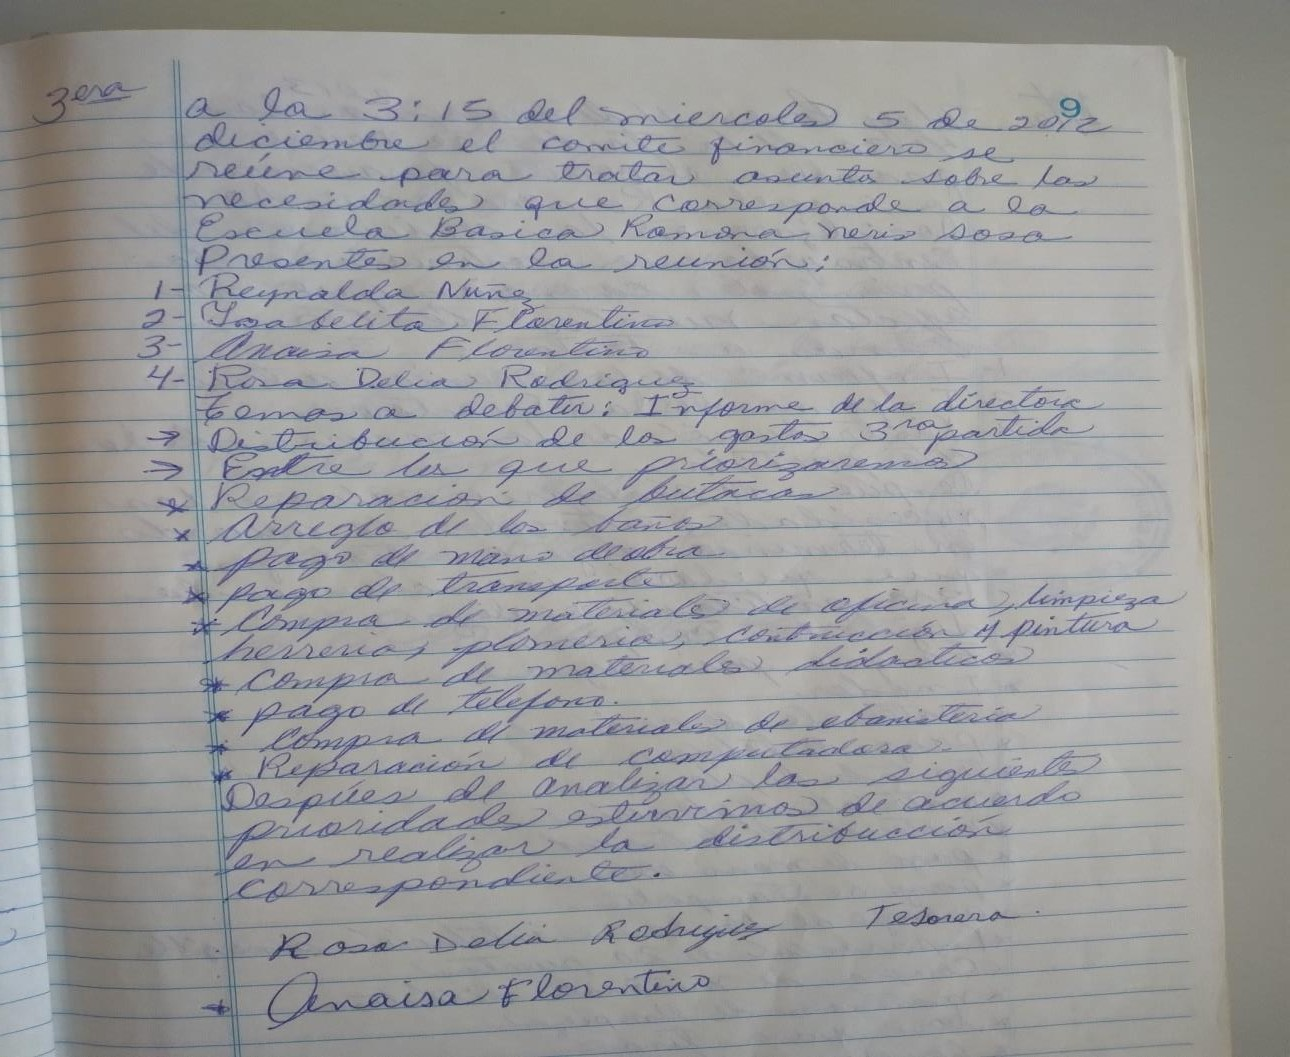 9
3era
a la 3:15 del miercoles 5 de 2012
diciembre el comite financiero se
reúne para tratar asunto sobre las
necesidades que corresponde a la
Escuela Basica Ramona Neris Sosa
Presentes en la reunión:
1- Reynalda Nuñez
2- Ysabelita Florentino
3- Anaisa Florentino
4- Rosa Delia Rodriguez
temas a debatir: Informe de la directora
→ Distribución de los gastos 3ra partida
→ Entre los que priorizaremos
* Reparación de butacas
* Arreglo de los baños
* pago de mano de obra
* pago de transporte
* Compra de materiales de oficina, limpieza
herreria, plomeria, contrucción y pintura
* Compra de materiales didacticos
* pago de telefono.
* Compra de materiales de ebanisteria
* Reparación de computadora.
Despúes de analizar las siguiente
prioridades estuvimos de acuerdo
en realizar la distribucción
correspondiente.
Rosa Delia Rodriguez Tesorera.
* Anaisa Florentino